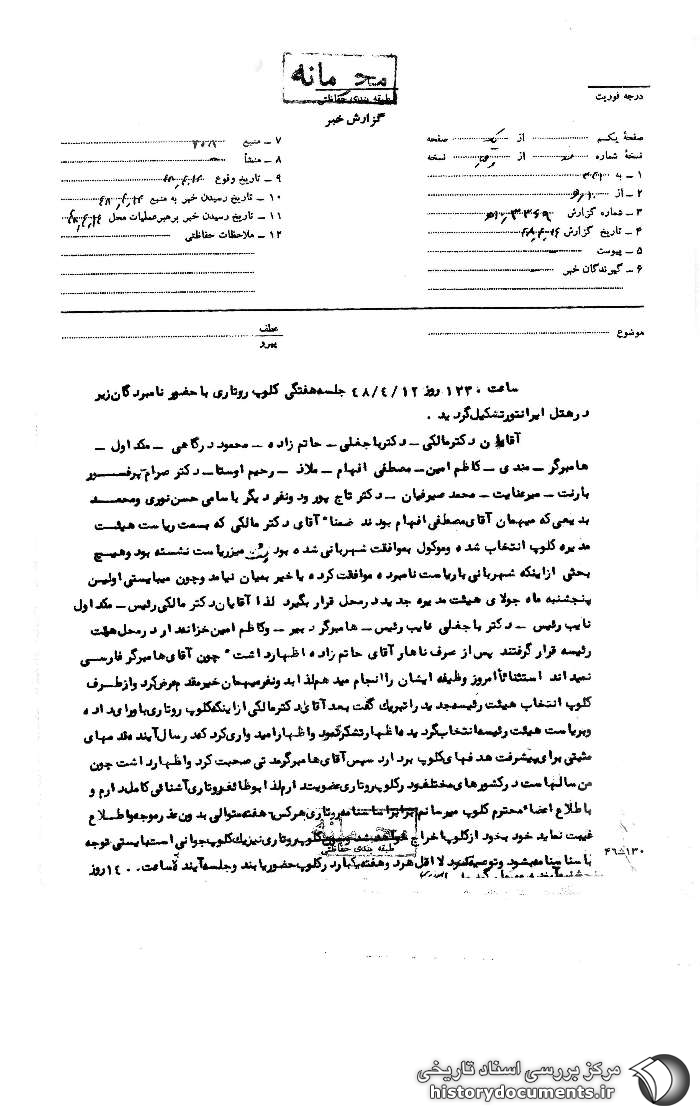 محرمانه
طبقه بندی حفاظتی
گزارش خبر
درجه فوریت
صفحهٔ یکم از صفحه
نسخهٔ شماره از نسخه
۱ ــ به ۳۴۱
۲ ــ از
۳ ــ شماره گزارش
۴ ــ تاریخ گزارش
۵ ــ پیوست
۶ ــ گیرندگان خبر
۷ ــ منبع
۸ ــ منشأ
۹ ــ تاریخ وقوع
۱۰ ــ تاریخ رسیدن خبر به منبع
۱۱ ــ تاریخ رسیدن خبر برهبر عملیات محل
۱۲ ــ ملاحظات حفاظتی
موضوع
عطف
پیرو
ساعت ۱۲۳۰ روز ۴۸/۴/۱۲ جلسه هفتگی کلوپ روتاری با حضور نامبردگان زیر
در هتل ایرانتور تشکیل گردید .
آقایان دکتر مالکی ــ دکتر باجغلی ــ حاتم زاده ــ محمود درگاهی ــ مکداول ــ
هامبرگر ــ مندی ــ کاظم امین ــ مصطفی افهام ــ ملاذ ــ رحیم اوستا ــ دکتر صرام ــ پرفسور
بارنت ــ میرعنایت ــ محمد صیرفیان ــ دکتر تاج پور و دونفر دیگر با سامی حسن نوری و محمد
بدیعی که میهمان آقای مصطفی افهام بودند ضمناً آقای دکتر مالکی که بسمت ریاست هیئت
مدیره کلوپ انتخاب شده و موکول بموافقت شهربانی شده بود پشت میز ریاست نشسته بود و هیچ
بحثی از اینکه شهربانی با ریاست نامبرده موافقت کرده یا خیر بمیان نیامد و چون میبایستی اولین
پنجشنبه ماه جولای هیئت مدیره جدید در محل قرار بگیرد لذا آقایان دکتر مالکی رئیس ــ مکداول
نایب رئیس ــ دکتر باجغلی نایب رئیس ــ هامبرگر دبیر ــ و کاظم امین خزانه دار در محل هئت
رئیسه قرار گرفتند پس از صرف ناهار آقای حاتم زاده اظهار داشت " چون آقای هامبرگر فارسی
نمیداند استثنائاً امروز وظیفه ایشان را انجام میدهم لذا بدونفر میهمان خیر مقدم عرض کرد و از طرف
کلوپ انتخاب هیئت رئیسه جدید را تبریک گفت بعد آقای دکتر مالکی از اینکه کلوپ روتاری باو رای داده
و بریاست هیئت رئیسه انتخاب گردیده اظهار تشکر نمود و اظهار امیدواری کرد که در سال آینده قدمهای
مثبتی برای پیشرفت هدفهای کلوپ بردارد سپس آقای هامبرگر مدتی صحبت کرد و اظهار داشت چون
من سالهاست در کشورهای مختلف در کلوپ روتاری عضویت دارم لذا بوظائف روتاری آشنائی کامل دارم و
باطلاع اعضاء محترم کلوپ میرسانم برابر اساسنامه روتاری هر کس هفته متوالی بدون عذر موجه و اطلاع
غیبت نماید خود بخود از کلوپ اخراج خواهد شد کلوپ روتاری نیز یک کلوپ جوانی است بایستی توجه
با ساسنامه بشود و توصیه نمود لااقل هر دو هفته یکبار در کلوپ حضور یابند و جلسه آینده ساعت ۱۴۰۰ روز
طبقه بندی حفاظتی
۴۶ــ۱۳۰
مرکز بررسی اسناد تاریخی
historydocuments.ir